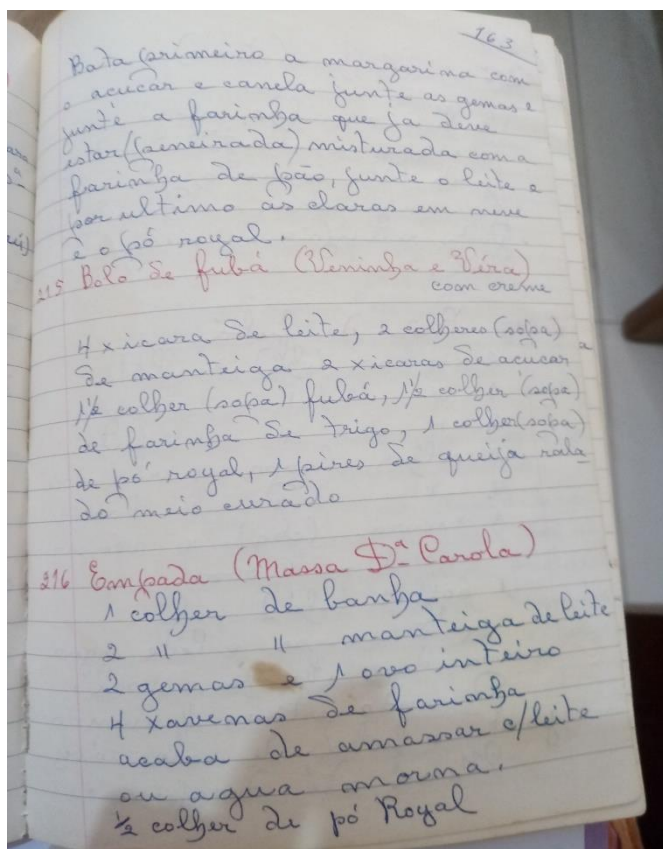 163
Bata primeiro a margarina com
o acucar e canela junte as gemas e
junte a farinha que ja deve
estar (peneirada) misturada com a
farinha de pão, junte o leite e
por ultimo as claras em neve
e o pó royal.
215 Bolo de fubá (Veninha e Véra)
com creme
4 xicara de leite, 2 colheres (sopa)
de manteiga 2 xicaras de acucar
1½ colher (sopa) fubá, 1½ colher (sopa)
de farinha de trigo, 1 colher (sopa)
de pó royal, 1 pires de queija rala-
do meio curado
216 Empada (Massa Dª Carola)
1 colher de banha
2 " " manteiga de leite
2 gemas e 1 ovo inteiro
4 xavenas de farinha
acaba de amassar c/leite
ou agua morna.
½ colher de pó Royal